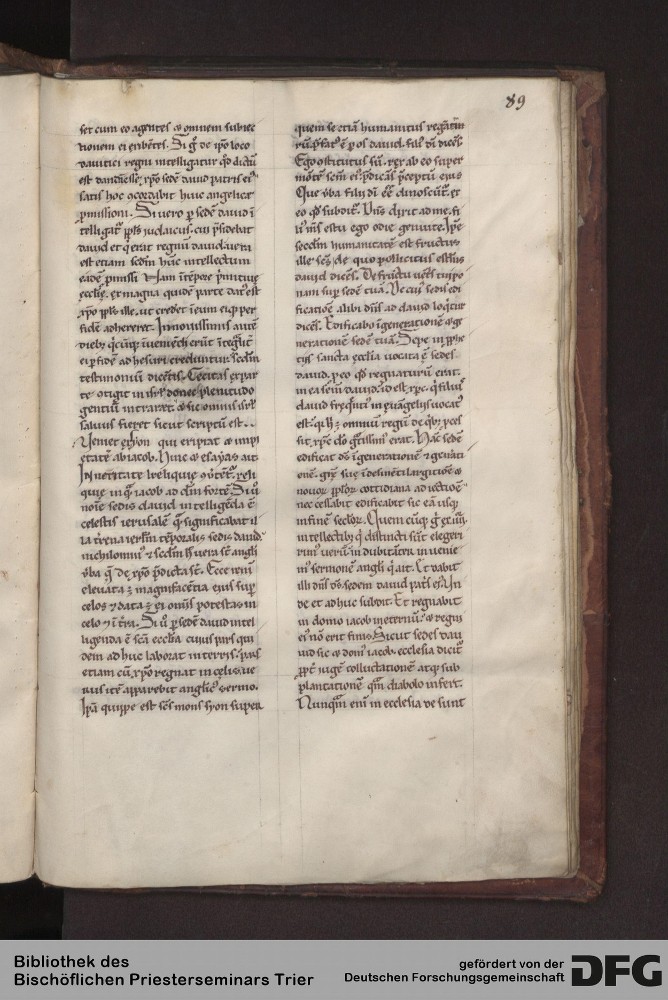 89
set cum eo agentes & omnem subiec
tionem ei exhibentes. Si g̊ de ip̄o loco
dauitici regni intelligatur qđ dictū
est dandū esse xp̄o sedē dauid patris ei᷒
satis hoc accordabit huic angelicę
ꝓmissioni. Si uero ꝑ sedē dauid ī
telligat᷑ ppl̄s iudaicus. cui p̄sidebat
dauid et q̇ erat regnū dauid. ueri
est etiam sedm̄ hūc intellectum
eādē ꝓmissi Nam ītēpore p̄mitiuę
ęcclię. et magna quidē parte dat᷒ est
xp̄o ppl̄s ille. ut crederet īeum eiq; per
fidē adhereret. In nouissimis autē
dieb; q̇cūq; īuenti erūt ītegrit̄
ei ꝑ fidē ad hesuri creduntur. Sec̄dm
testimoniū dicētis. Cecitas ex par
te ↄtigit in isrl̄ donec plenitudo
gentiū intraret. & sic omnis isrl̄
saluus fieret sicut scriptū est.
Veniet ex syon qui eripiat & impi
etatē ab iacob. Huic & esayas ait.
In ueritate
quię in q̄ iacob ad dm̄ fortē. Si ů
noīe sedis dauid intelligēda ē
celestis ierusalē q̄ significabat᷑ il
la t̄rena ierlm̄ tēporalis sedis dauid
nichilomin᷒
ůba q̄ de xp̄o p̄dicta st̄. Ecce enim
eleuata ē magnificētia eius suꝑ
celos & data ē ei omīs potestas in
celo & ī t̄ra. Si ů ꝑ sedē dauid intel
ligenda ē sc̄a ecclia cuius pars qui
dem adhuc laborat in terris. pars
etiam cū xp̄o regnat in cęlis. ue
rus itē apparebit anglic᷒ sermo.
Ip̄a quippe est sc̄s mons syon super
quem se etiā humanitus regnatu
rū p̄fat᷒ ē ꝑ os dauid.
Ego ↄstitutus sū rex ab eo super
mōtē sc̄m ei᷒ p̄dicās p̄ceptū eius
Que ůba filii dī eē dinoscunt᷑ ex
eo qđ subdit᷑. Dn̄s dixit ad me. fi
li᷒ m̄s es tu ego hodie genui te. Ip̄e
secdm̄ humanitatē est fruct᷒
ille de quo pollicitus est dn̄s
dauid dicēs. De fructu uētris tui po
nam sup̄ sedē tuā. De cui᷒ sedis edi
ficatiōe alibi dn̄s ad dauid loq̇tur
dicēs. Edificabo ī generationē & ge
nerationē sedē tuā. Sepe in ꝓphe
tiis sancta ęcclia uocata ē sedes
dauid. ꝑ eo qđ regnaturū erat
in ea semī dauid. id est xp̄c. q̇ filius
dauid freq̄nt᷒ in euangeliis uocat᷒
est. q̇
sit. xp̄c dō
edificat dn̄s ī generationē & genati
onē. grę suę īdesinēti largitione &
nouor̄ ppl̄or̄ cottidiana aduectiōe
nec cessabit edificabit sic eā usq;
in finē seclor̄. Quem cūq; g̊ ex iiii.
intellectib; q̇ distincti sūt elegeri
rim᷒ uerū in dubitāter inuenie
m᷒ sermonē angli q̇ ait. Et dabit
illi dn̄s ds̄ sedem dauid patris ei᷒. Un
de et adhuc subdit. Et regnabit
in domo iacob īeternū. & regni
ei᷒ nō erit finis. Sicut sedes dau
uid sic & dom᷒ iacob ecclesia dicit᷑
ꝓpt̄ iugē colluctationē atq; sub
plantationē q̄m diabolo infert.
Nunq̄m enī in ecclesia desunt
Bibliothek des
Bischöflichen Priesterseminars Trier
gefördert von der
Deutschen Forschungsgemeinschaft
DFG